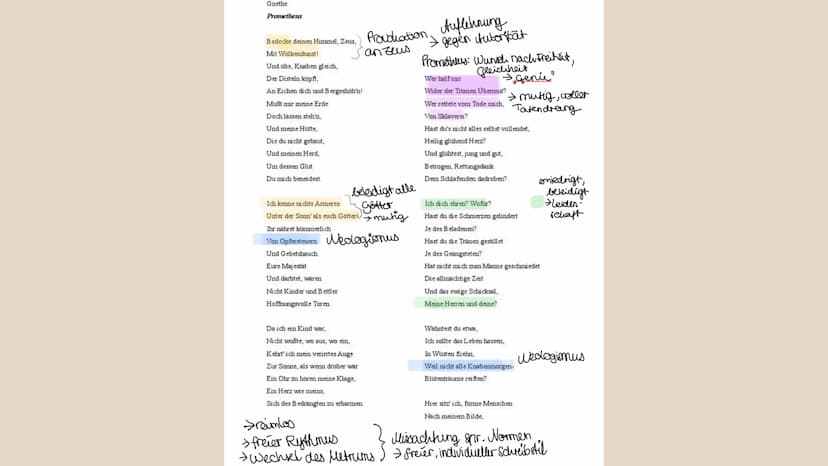 Goethe
Prometheus
Bedecke deinen Himmel, Zeus,
Mit Wolkendunst!
Und übe, Knaben gleich,
Der Disteln köpft,
An Eichen dich und Bergeshöh'n!
Mußt mir meine Erde
Doch lassen steh'n,
Und meine Hütte,
Die du nicht gebaut,
Und meinen Herd,
Um dessen Glut
Du mich beneidest.
Provokation
an Zeus
→ Auflehnung
gegen Autorität
Ich kenne nichts Ärmeres
Unter der Sonn' als euch Götter!
Ihr nähret kümmerlich
Von Opfersteuern
Und Gebetshauch
Eure Majestät
Und darbtet, wären
Nicht Kinder und Bettler
Hoffnungsvolle Toren.
beleidigt alle
Götter
→ mutig
Neologismus
Da ich ein Kind war,
Nicht wußte, wo aus, wo ein,
Kehrt' ich mein verirrtes Auge
Zur Sonne, als wenn drüber wär
Ein Ohr zu hören meine Klage,
Ein Herz wie meins,
Sich des Bedrängten zu erbarmen.
Prometheus: Wunsch nach Freiheit,
Gleichheit
Wer half mir
Wider der Titanen Übermut?
Wer rettete vom Tode mich,
Von Sklaverei?
Hast du's nicht alles selbst vollendet,
Heilig glühend Herz?
Und glühtest, jung und gut,
Betrogen, Rettungsdank
Dem Schlafenden dadroben?
→ "Genie"
→ mutig, voller
Tatendrang
Ich dich ehren? Wofür?
Hast du die Schmerzen gelindert
Je des Beladenen?
Hast du die Tränen gestillet
Je des Geängsteten?
Hat nicht mich zum Manne geschmiedet
Die allmächtige Zeit
Und das ewige Schicksal,
Meine Herren und deine?
erniedrigt,
beleidigt
→ Leiden-
schaft
Wähntest du etwa,
Ich sollte das Leben hassen,
In Wüsten fliehn,
Weil nicht alle Knabenmorgen-
Blütenträume reiften?
Neologismus
Hier sitz' ich, forme Menschen
Nach meinem Bilde,
→ reimlos
→ freier Rythmus
→ Wechsel des Metrums
Missachtung spr. Normen
→ freier, individueller Schreibstil